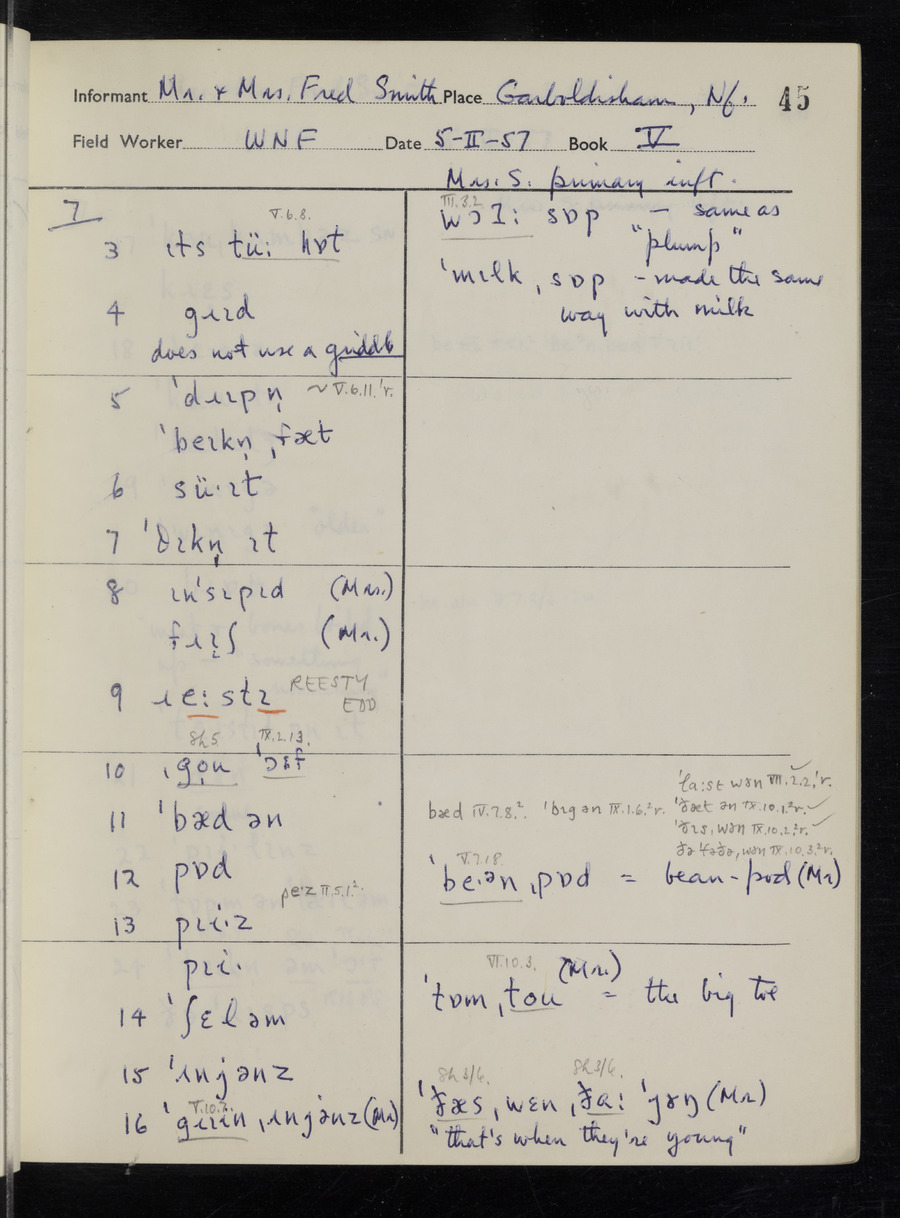 Informant Mr. & Mrs. Fred Smith Place Garboldisham, Nf. 45
Field Worker WNF Date 5-II-57 Book V
Mrs. S. primary inft.
7
V.6.8.
3 ɪts tü: hɒt
4 gɹɪd
does not use a griddle
5 ˈdɹɪpn̩ ~ V.6.11.ˈr.
ˈbeɪkn̩ ˌfæt
6 sü·ɪt
7 ˈðɪkn̩ ɪt
8 ɪnˈsɪpɪd (Mrs.)
(Mr.)
9 ɹe:stɪ REESTY
EDD
Sh 5. IX.2.13.
10 ˌgọn ˈɔəf
11 ˈbæd ən
12 pɒd
pe·z V.5.1.²
13 pɪi·z
pɪi·
14 ˈʃɛləm
15 ˈɪnjənz
V.10.7.
16 ˈgɹɪin ˌɪnjənz (Mr)
III.3.2
sɒp – same as
"plump"
ˈmɪlk ˌsɒp – made the same
way with milk
ˈla:st wən VII.2.2.ˈr.
bæd IV.7.8.². ˈbɪg ən IX.1.6.²r. ˈðæt ən IX.10.1.²r.
ˈðɪs ˌwən IX.10.2.²r.
wən IX.10.3.²r.
V.7.18.
ˈbe·ən ˌpɒd = bean-pod (Mr)
VI.10.3. (Mr.)
ˈtɒm ˌtou = the big toe
Sh 3/6. Sh 3/6.
ˈðæs ˌwɛn ˌða: ˈjəŋ (Mr)
"that's when they're young"